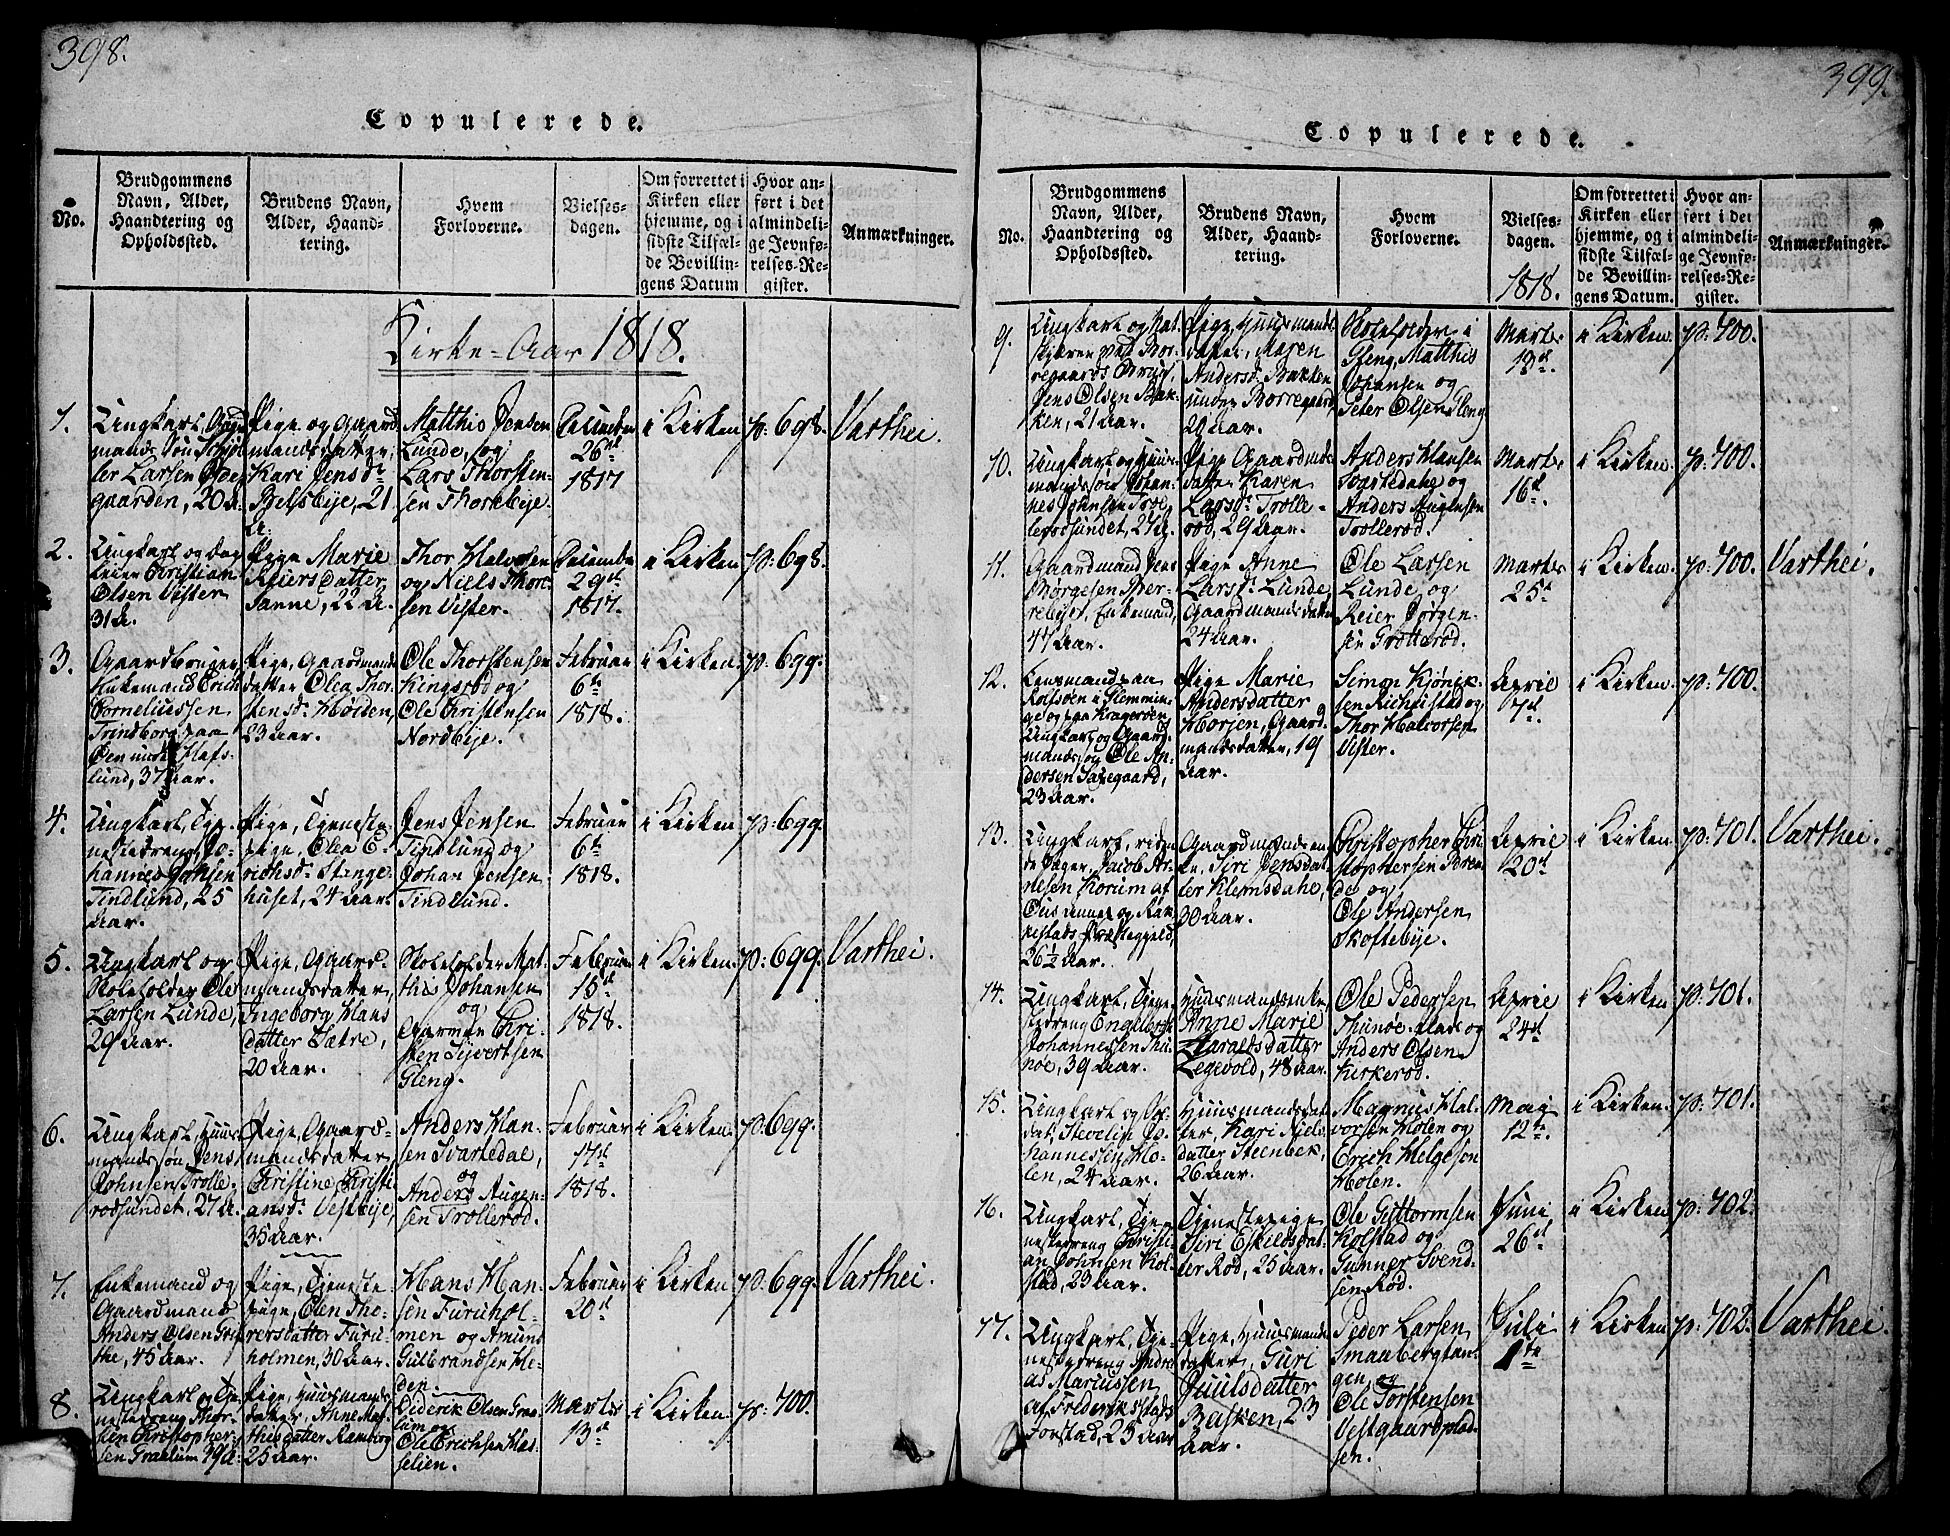 398.
Copulerede.
No.
Brudgommens
Navn, Alder,
Haandtering og
Opholdssted.
Brudens Navn,
Alder, Haand-
tering.
Hvem
Forloverne.
Vielses-
dagen.
Om forrettet i
Kirken eller
hjemme, og i
sidste Tilfæl-
de Bevillin-
gens Datum
Hvor an-
ført i det
almindeli-
ge Jevnfø-
relses-Re-
gister.
Anmærkninger.
Kirke-Aar 1818.
1.
Ungkarl,
mands Søn
ler Larsen
gaarden, 20 A.
Pige og Gaard
mandsdatter,
Kari Jensdr
21
A.
Matthis Jensen
Lunde, og
Lars Thorsten-
sen Thorkebye.
December
26de
1817
i Kirken
p: 698.
Varthei.
2.
Ungkarl og
Christian
Olsen Vister
31 A.
Pige Marie
Reiersdatter
Sanne, 22 A.
Thor Halvorsen
og Niels Thor-
sen Vister.
December
29de
1817.
i Kirken
p: 698.
3.
Gaardbruger,
Enkemand Erich
Corneliussen
Trindborg paa
Øen under Hafs-
lund, 37 Aar.
Pige, Gaardmands
datter Olea Thor-
stensdr Høiden,
23 Aar.
Ole Thorstensen
Kingsrød og
Ole Christensen
Nordbye.
Februar
6te
1818.
i Kirken
p: 699.
4.
Ungkarl, Tje-
nestedreng Jo-
hannes Johnsen
Tindlund, 25
Aar.
Pige, Tjeneste-
pige, Olea E-
richsdr Stenge-
huset, 24 Aar.
Jens Jensen
Tindlund og
Johan Jensen
Tindlund.
Februar
6te
1818.
i Kirken
p: 699.
5.
Ungkarl og
Skoleholder Ole
Larsen Lunde,
29 Aar.
Pige, Gaard-
mandsdatter,
Ingeborg Hans
datter Sætre,
20 Aar.
Skoleholder Mat-
this Johansen
og
Chri-
sten Syvertsen
Gleng.
Februar
15de
1818.
i Kirken
p: 699.
Varthei.
6.
Ungkarl, Huus-
mandssøn, Jens
Johnsen Trolle-
rødsundet, 27 A.
Pige, Gaard-
mandsdatter
Christine Christi-
ansdr Vestbye,
35 Aar.
Anders Han-
sen Svartedal,
og
Anders Augen-
sen Trollerød.
Februar
17de
1818.
i Kirken
p: 699.
7.
Enkemand og
Gaardmand
Anders Olsen
the, 45 Aar.
Pige, Tjeneste
pige, Olea Tho-
rersdatter Furu-
holmen, 30 Aar.
Hans Han-
sen Furuhol-
men og Amund
Gulbrandsen He-
den.
Februar
20de
i Kirken
p: 699.
Varthei.
8.
Ungkarl og Tje-
nestedreng Thor-
sten Christopher-
sen Graalum 39 A.
Pige, Huusmands
datter, Anne Mat-
thisdatter Ramberg
25 Aar.
Diderik Olsen Graa-
lum og
Ole Erichsen Has-
selien.
Marts
13de
i Kirken
p: 700.
399.
Copulerede.
No.
Brudgommens
Navn, Alder,
Haandtering og
Opholdssted.
Brudens Navn,
Alder, Haand-
tering.
Hvem
Forloverne.
Vielses-
dagen.
1818.
Om forrettet i
Kirken eller
hjemme, og i
sidste Tilfæl-
de Bevillin-
gens Datum.
Hvor an-
ført i det
almindeli-
ge Jevnfø-
relses-Re-
gister.
Anmærkninger.
9.
Ungkarl og
skjærer ved Bor-
regaards Brug,
Jens Olsen Bak-
ken, 21 Aar.
Pige, Huusmands
datter, Maren
Andersdr Bakken
under Borregaard
29 Aar.
Skoleholder i
Gleng, Matthis
Johansen og
Peter Olsen Gleng
Marts
13de
i Kirken.
p: 700.
10.
Ungkarl og Huus-
mandssøn Johan-
nes Johnsen Trol-
lerødsundet, 27 A.
Pige Gaardmands
datter Karen
Larsdr Trolle-
rød, 29 Aar.
Anders Hansen
Svartedahl og
Anders Augensen
Trollerød.
Marts
16de
i Kirken.
p: 700.
11.
Gaardmand Jens
Børgesen
Enkemand,
47 Aar.
Pige Anne
Larsdr Lunde
Gaardmandsdatter
24 Aar.
Ole Larsen
Lunde og
Reier Jørgen-
sen Grotterød.
Marts
25de
i Kirken.
p: 700.
Varthei.
12.
Lensmand paa
Rolfsøen i Glemmin-
ge og paa Kragerøen,
Ungkarl og Gaard
mandssøn Ole An-
dersen
23 Aar.
Pige Marie
Andersdatter
Horjen, Gaard-
mandsdatter, 19
Aar.
Simon
sen Richeistad og
Thor Halvorsen
Vister.
April
7de
i Kirken.
p: 700.
13.
Ungkarl, riden
de Jæger, Jacob Ar-
nesen Korum af
Eidsberg og
Præstegjeld,
26½ Aar.
Gaardmandsen-
ke, Siri Jensdat-
ter Klemsdahl,
30 Aar.
Christopher Chri-
stophersen
og
Ole Andersen
Skoftebye.
April
20de
i Kirken.
p: 701.
Varthei.
14.
Ungkarl, Tjene-
stedreng Engelbret
Johannessen Thu-
nøe, 39 Aar.
Huusmandsenke
Anne Marie
Haraldsdatter
Legevold, 48 Aar.
Ole Pedersen
Thunøe og
Anders Olsen
Kirkerød.
April
24de
i Kirken
p: 701.
15.
Ungkarl og Sol-
dat, Jo-
hannessen Ho-
len, 24 Aar.
Huusmandsdat-
ter, Kari Niels-
datter Steenbek,
26 Aar.
Magnus Hal-
vorsen Holen og
Erich Helgesen
Holen.
Maj
12te.
i Kirken.
p: 701.
16.
Ungkarl, Tje-
nestedreng Christi-
an Johnsen Kol-
stad, 23 Aar.
Tjenestepige
Siri Eskildsdat-
ter Rød, 25 Aar.
Ole Guttormsen
Kolstad og
Gunner Svend-
sen Rød.
Juni
26de
i Kirken.
p: 702.
17.
Ungkarl, Tje-
nestedreng Andre-
as Mariussen
af Frederikstads
Forstad, 23 Aar
Pige, Huusmands
datter, Guri
Juulsdatter
Bakken, 23
Aar.
Peder Larsen
Smaabergtan-
gen, og
Ole Torstensen
Vestgaardplad-
sen.
Juli
1te
i Kirken
p: 702.
Varthei.